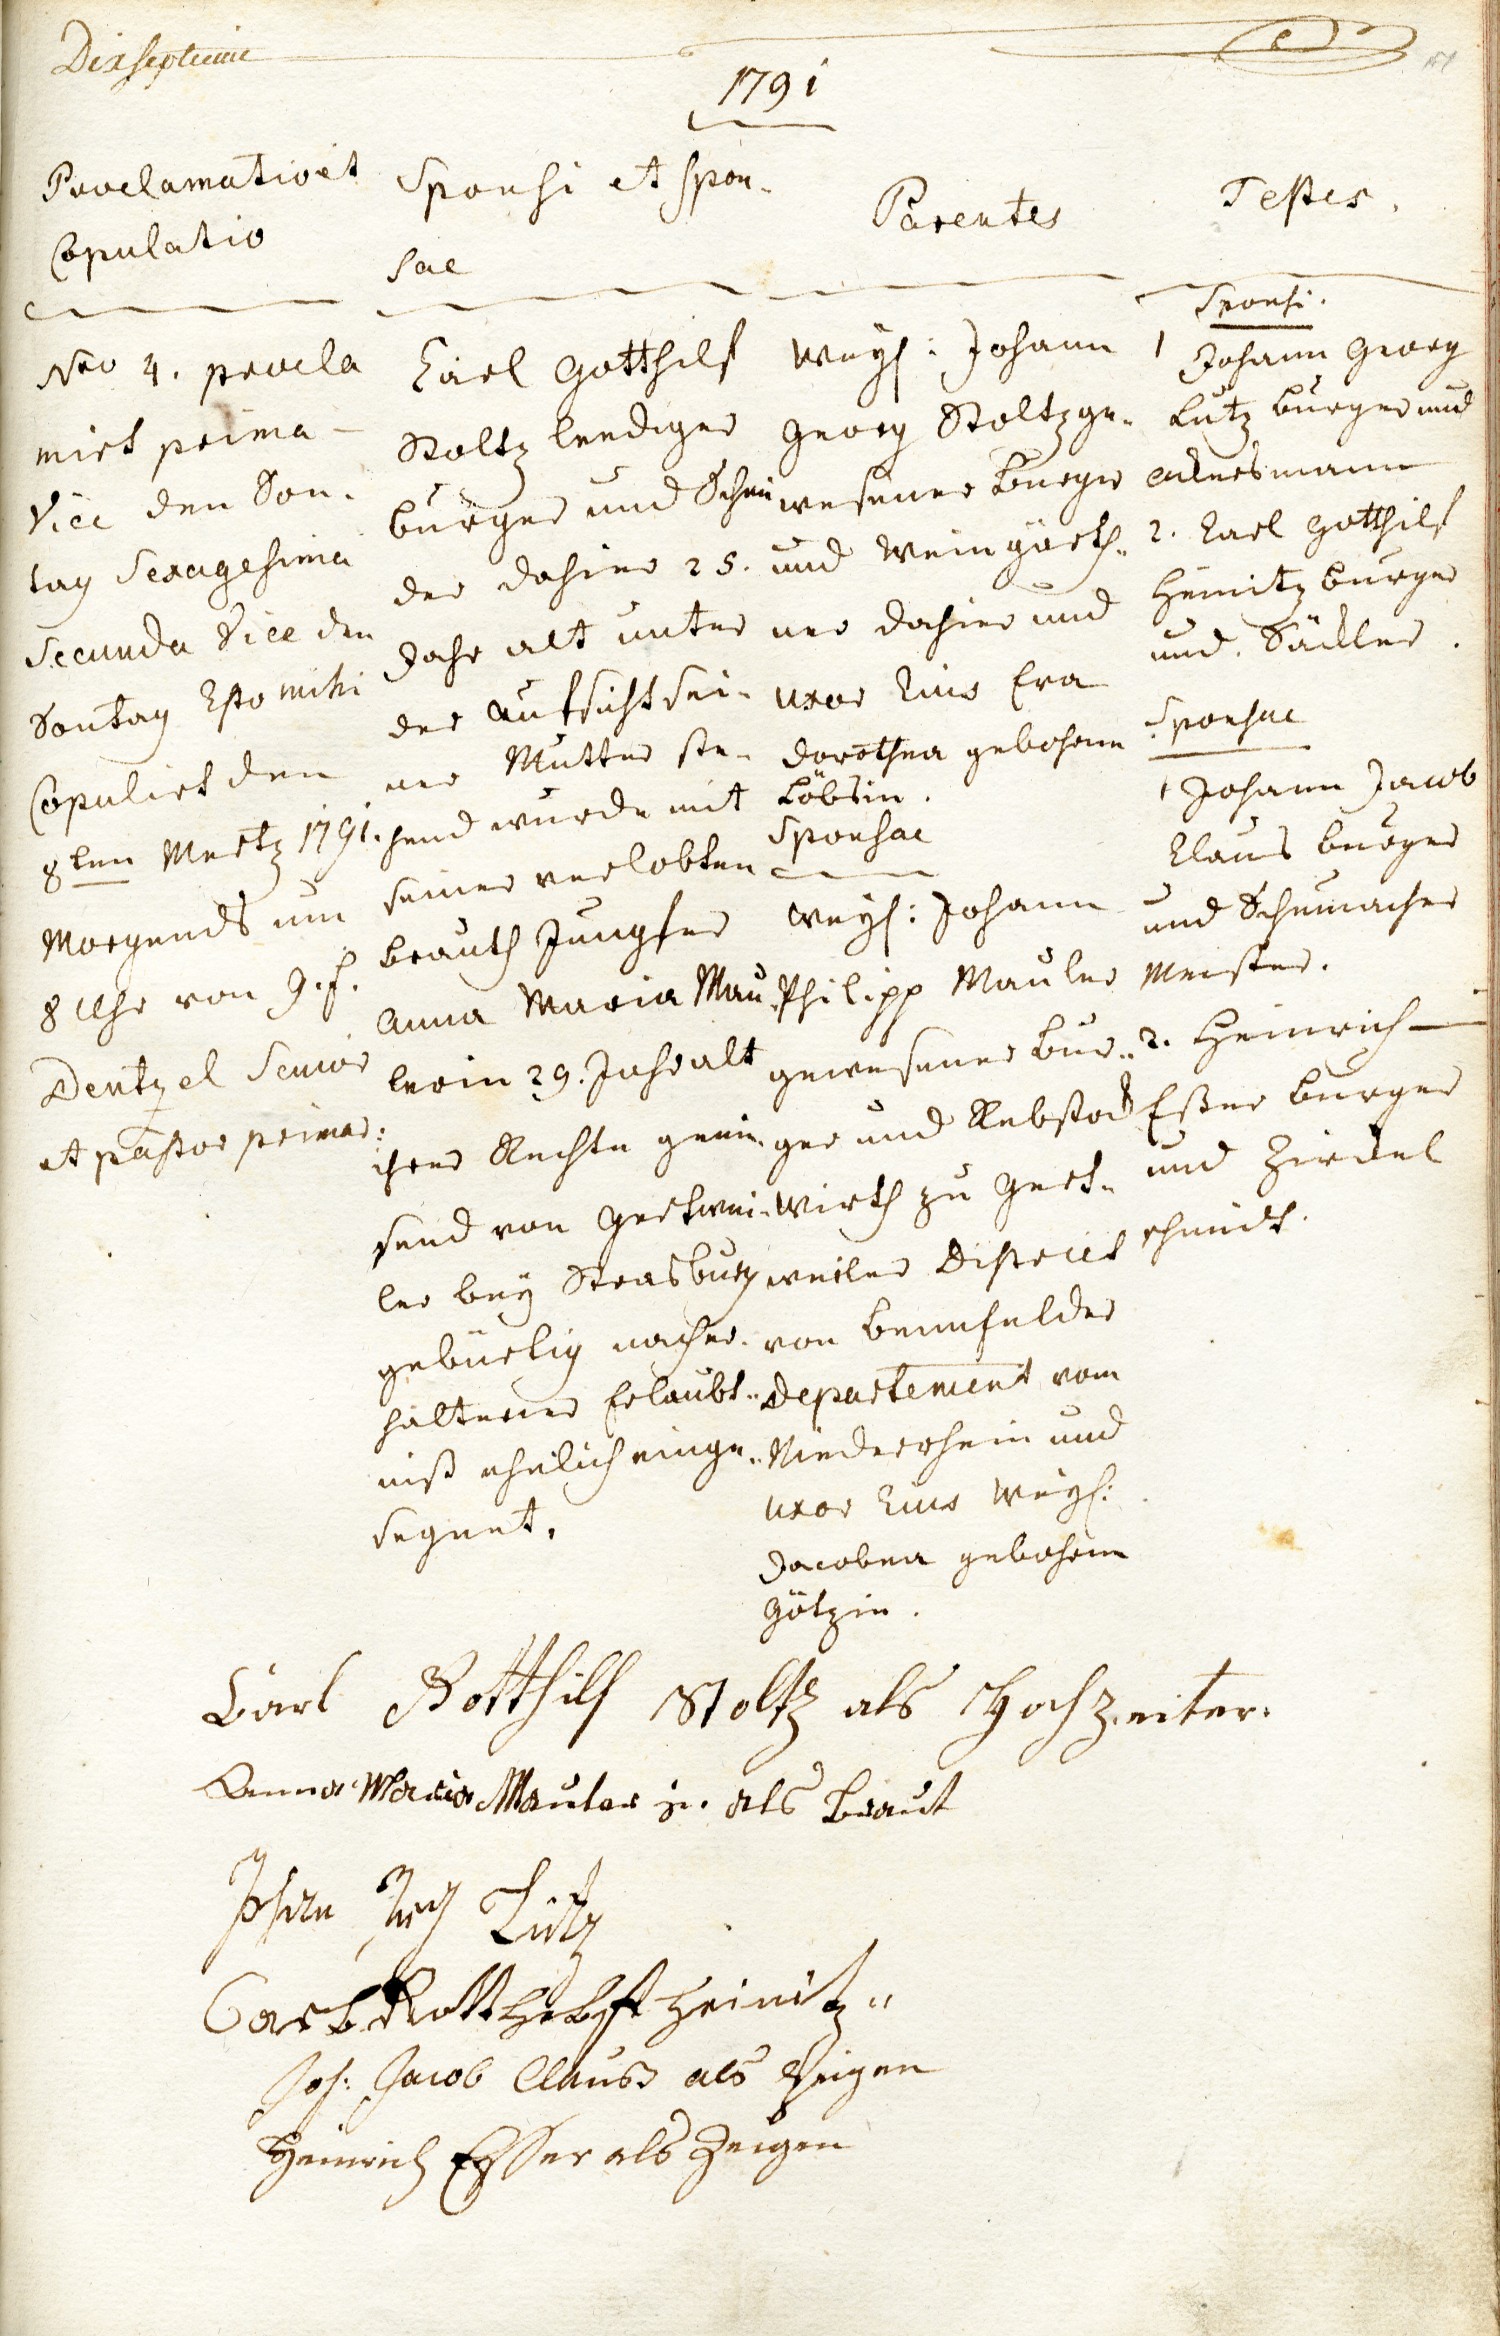 Dixseptieme
1791
Proclamatio et
Copulatio
Sponsi et Spon-
sae
Parentes
Testes.
Nro 4. procla
mirt prima
Vice den Son-
tag Sexagesima
Secunda Vice den
Sontag Esto mihi
Copulirt den
8ten Mertz 1791.
Morgends um
8 Uhr von H.
Dentzel Senior
et pastor primar:
Carl Gotthilf
Stoltz leediger
burger und Schnei
der dahier 25.
Jahr alt unter
der Aufsicht sei-
ner Mutter ste-
hend wurde mit
seiner verlobten
brauth Jungfer
Anna Maria Mau
lerin 29. Jahr alt
ihrer Rechte genie-
send von Gertwei-
ler bey Strasburg
gebürtig nach er-
haltener Erlaubt-
niß ehelich einge-
segnet.
Weyl: Johann
Georg Stoltz ge-
wesener Burger
und Weingärth-
ner dahier und
uxor Eius Eva
Dorothea gebohrne
Löbsin.
Sponsae
Weyl: Johann
Philipp Mauler
gewesener Bur-
ger und Rebstock
Wirth zu Gert-
weiler District
von Bennfelder
Departement vom
Niederrhein und
uxor Eius Weyl:
Jacobea gebohrne
Götzin.
Sponsi.
1 Johann Georg
Lutz burger und
Ackersmann
2. Carl Gotthilf
Heinitz burger
und Säckler.
Sponsae
1 Johann Jacob
Claus burger
und Schumacher
Meister.
2. Heinrich
Eßer burger
und Zirckel
schmidt.
Carl Gotthilf Stoltz als Hochzeiter.
Anna Maria Mauler in. als Braut
Johan Lutz
Carl Gotthelft Heinitz
Joh: Jacob Clauss als Zeigen
Heinrich Esser als Zeigen